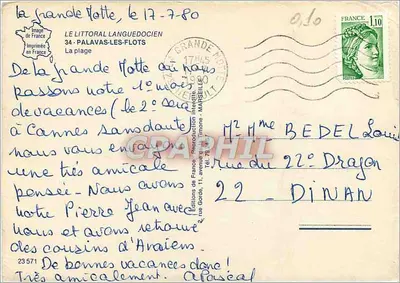 La grande Motte, le 17-7-80
0,10
Image
de France
Imprimée
en France
LE LITTORAL LANGUEDOCIEN
34 - PALAVAS-LES-FLOTS
La plage
FRANCE
1,10
GRANDE
De la grande Motte où nous
passons notre 1er mois
de vacances (le 2e sera
à Cannes sans doute
nous vous envoyons
une très amicale
pensée - Nous avons
notre Pierre Jean avec
nous et avons retrouvé
des cousins d'
De bonnes vacances donc !
Très amicalement. APascal
23 571
Mr Mme BEDEL Louis
rue du 22e Dragon
22 - DINAN
CPAPHIL